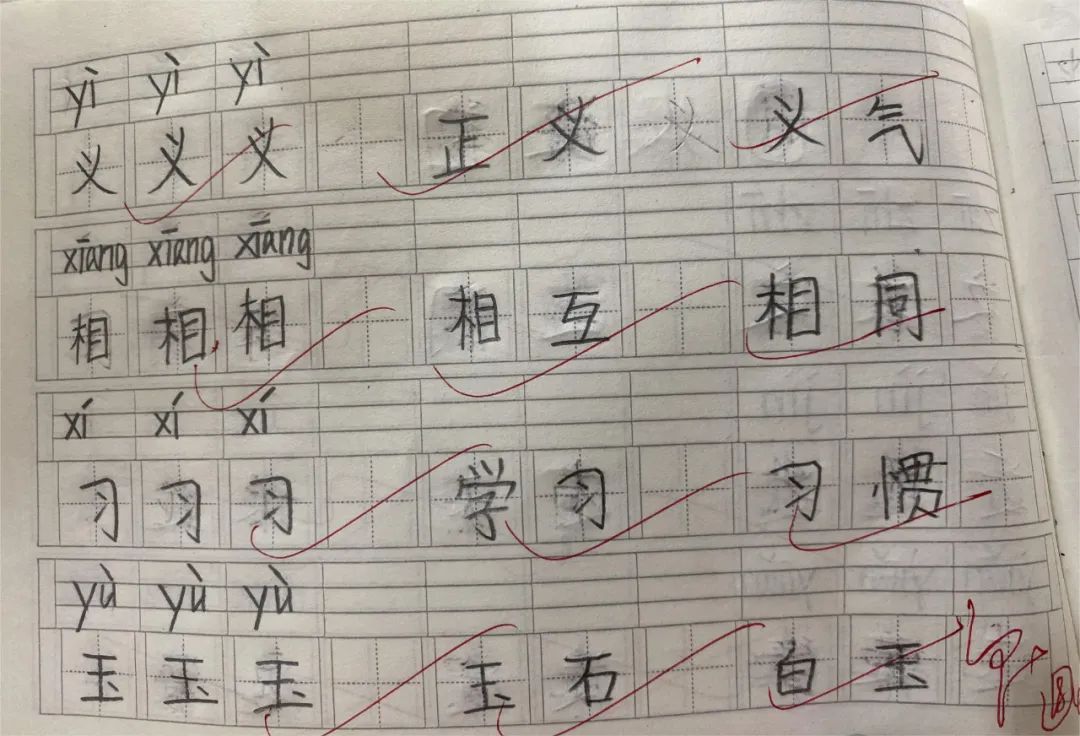 yì yì yì
义 义 义 正 义 义 气
xiāng xiāng xiāng
相 相 相 相 互 相 同
xí xí xí
习 习 习 学 习 习 惯
yù yù yù
玉 玉 玉 玉 石 白 玉